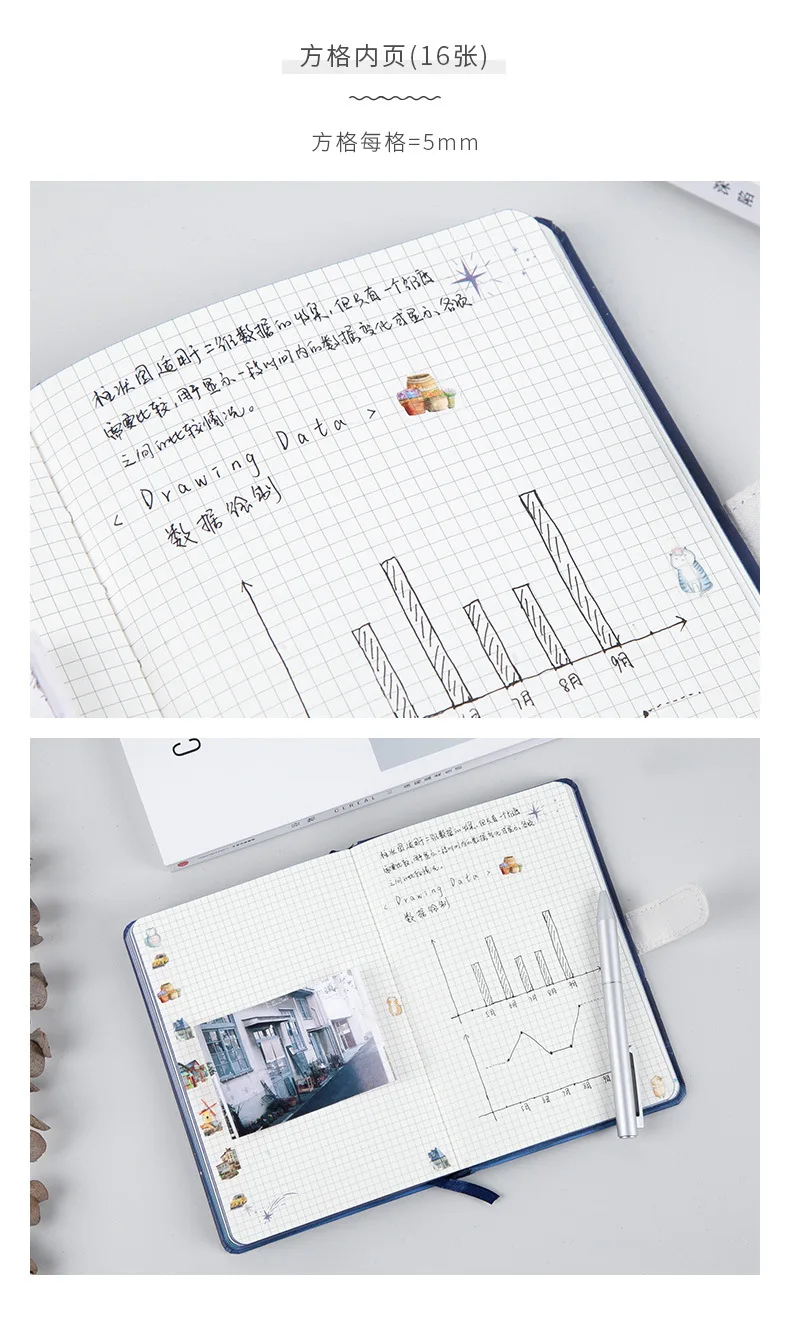 方格内页(16张)
方格每格=5mm
柱状图适用于二维数据的收集，但只有一个维度
需要比较，用于显示一段时间内的数据变化或显示各项
之间的比较情况。
< Drawing Data >
数据绘制
7月
8月
9月
CEREAL
柱状图适用于二维数据的收集，但只有一个维度
需要比较，用于显示一段时间内的数据变化或显示各项
之间的比较情况。
< Drawing Data >
数据绘制
5月 6月 7月 8月 9月
5月 6月 7月 8月 9月